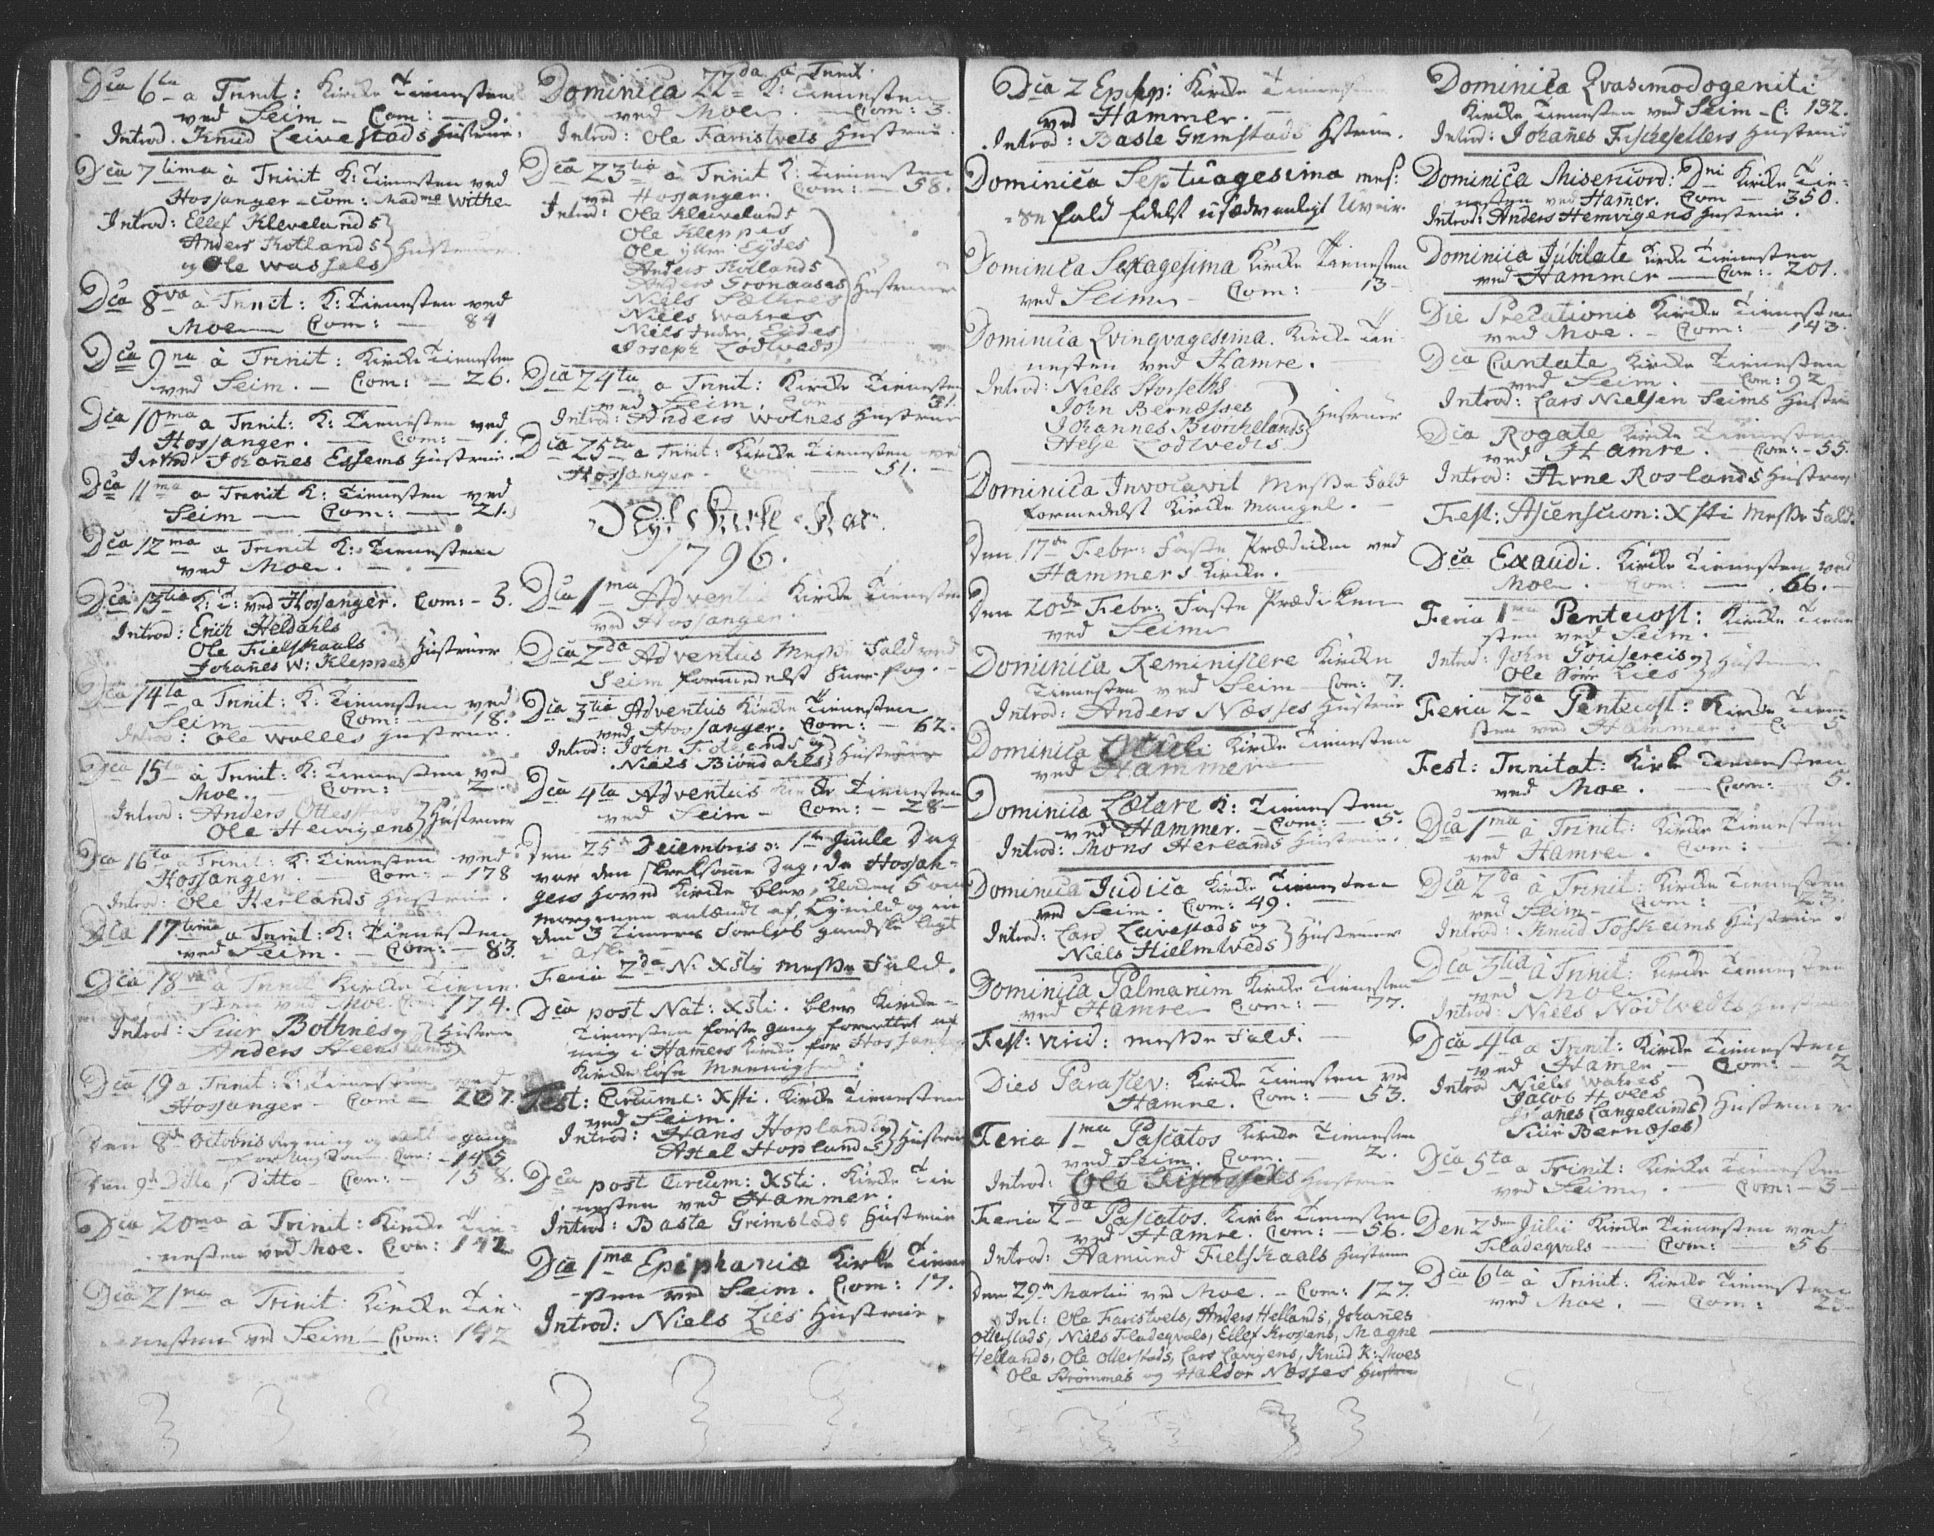 Dca 6ta a Trinit: Kircke Tienesten
ved Seim - Com: - 9.
Introd. Knud Leivestads Hustrue:
Dca 7tima à Trinit K: Tienesten ved
Hosanger - Com: Madme Withe
Introd: Ellef Klevelands
Anders Kotlands
og Ole Wassels Hustruer
Dca 8va à Trinit: K: Tienesten ved
Moe Com: - 84
Dca 9na à Trinit: Kircke Tienesten
ved Seim. - Com: - 26.
Dca 10ma a Trinit: K: Tienesten ved
Hosanger. - Com: - 1.
Introd: Johañes Essems Hustrue.
Dca 11ma a Trinit K: Tienesten ved
Seim - Com: - 21.
Dca 12ma a Trinit K: Tienesten
ved Moe. -
Dca 13tia K: T: ved Hosanger. Com: - 3.
Introd: Erich Heldahls
Ole Fielskaals
Johañes W: Kleppes Hustruer
Dca 14ta a Trinit: K: Tienesten ved
Seim - Com: - 18.
Introd: Ole Wolles Hustrue.
Dca 15ta à Trinit: K: Tienesten ved
Moe. - Com: - 2.
Introd: Anders Ottestads
Ole Hevigens Hustruer
Dca 16ta a Trinit: K: Tienesten ved
Hosanger. - Com: - 178
Introd: Ole Herlands Hustrue.
Dca 17tima a Trinit: K: Tienesten
ved Seim. - Com: - 83.
Dca 18va à Trinit Kircke Tiene
sten ved Moe Com: 174.
Introd: Siur Bothnes og
Anders Steenslands Hustruer
Dca 19 a Trinit: K: Tienesten ved
Hosanger - Com - 207.
Den 8de Octobris
Com: - 145
Den 9de Dito, Ditto - Com: - 158.
Dca 20ma à Trinit: Kircke Tie-
nesten ved Moe. Com: 142
Dca 21ma a Trinit: Kircke Tie-
nesten ved Seim - Com: 142
Dominica 22da a Trinit.
K: Tienesten
ved Moe - Com: 3.
Introd: Ole Faristvets Hustrue.
Dca 23tia à Trinit K: Tienesten
ved Hosanger. Com: - 58.
Introd: Ole Kleivelands
Ole Kleppes
Ole Eydes
Anders Kotlands
Anders Gronaases
Niels Sæthres
Niels Wahres
Niels Indre Eydes
Joseph Lødtveds Hustruer
Dca 24ta a Trinit: Kircke Tienesten
ved Seim. Com 31.
Introd: Anders Wotnes Hustrue
Dca 25ta a Trinit: Kircke Tienesten ved
Hosanger. Com 51.
Nyt Kirke-Aar
1796.
Dca 1ma Adventus Kircke Tienesten
ved Hosanger.
Dca 2da Adventus Messe Fald ved
Seim formedelst Snee-fog. -
Dca 3tia Adventus Kircke Tienesten
ved Hosanger. Com: - 62.
Introd: John
Niels Biondahls Hustruer
Dca 4ta Adventus Kircke Tienesten
ved Seim - Com: - 28 -
Den 25de Decembris o: 1ste Juule Dag
var den skreksomme Dag, da Hosan-
gers Hoved Kircke blev,
morgenen antændt af Lynild og in-
den 3 Timers Forløb gandske lagt
i Aske
Feria 2da N: Xsti Messe Fald.
Dca post Nat: Xsti. blev Kircke-
Tienesten forste gang forrettet af
mig i Hamers Kircke for Hosangers
Kirckeløse Meenighed.
Fest: Circumc: Xsti. Kircke Tienesten
ved Seim.
Introd: Hans Hoplands og
Axel Hoplands Hustruer
Dca post Circum: Xsti. Kircke Tie-
nesten ved Hammer.
Introd: Baste Grimstads Hustrue
Dca 1ma Epiphaniæ Kirke Tiene-
sten ved Seim. Com: 17.
Introd: Niels Lies Hustrue.
3
Dca 2 Epiph: Kircke Tienesten
ved Hammer.
Introd: Baste Grimstads Hustrue.
Dominica Septuagesima Mes-
se Fald fdelst usædvanligt Uveir.
Dominica Sexagesima Kircke Tienesten
ved Seim - Com: - 13 -
Dominica Qvingvagesima. Kircke Tie-
nesten ved Hamre.
Introd: Niels Storseths
John Bernæsses
Johannes Biørchelands
Helje Lødtvedts Hustruer
Dominica Invocavit Messe Fald
formedelst Kircke Mangel. -
Den 17de Febr: Faste Prædiken ved
Hammers Kircke.
Den 20de Febr: Faste Prædiken
ved Seim
Dominica Reminiscere Kircke
Tienesten ved Seim - Com: 7.
Introd: Anders Næsses Hustrue
Dominica Oculi Kircke Tienesten
ved Hammer
Dominica Lætare K: Tienesten
ved Hammer. Com: - 5.
Introd: Mons Herlands Hustrue.
Dominica Judica Kircke Tienesten
ved Seim. Com: 49.
Introd: Lars Leivestads og
Niels Hielmtveds Hustruer
Dominica Palmarum Kircke Tienesten
ved Hamre Com: - 77.
Fest: Virid: Messe Fald. -
Dies Parascev: Kircke Tienesten ved
Hamre. Com: - 53.
Feria 1ma Pascatos Kircke Tienesten
ved Seim. Com. - 2.
Introd: Ole Hustrue
Feria 2da Pascatos. Kircke Tienesten
ved Hamre. Com: - 56.
Introd: Hamund Fielskaals Hustrue
Den 29de Martii ved Moe. - Com: 127.
Int: Ole Faristvets, Anders Hellands, Johañes
Otterstads, Niels Fladeqvals, Ellef Krossens, Magne
Hellands, Ole Otterstads, Lars Lavigens, Knud K: Moes
Ole Strømmes og Haldor Næsses Hustruer
Dominica Qvasimodogeniti
Kircke Tienesten ved Seim - C: 132.
Introd: Johañes Fischesetters Hustrue
Dominica Misericord: Dni Kircke Tie-
nesten ved Hamer. Com - 350.
Introd: Anders Hemvigens Hustrue.
Dominica Jubilate Kircke Tienesten
ved Hammer - Com: - 201.
Die Precationis Kircke Tienesten
ved Moe. - Com: - 143.
Dca Cantate Kircke Tienesten
ved Seim. - Com: 92
Introd: Lars Nielsen Seims Hustrue
Dca Rogate Kircke Tienesten
ved Hamre. - Com: - 55.
Introd: Arne Roslands Hustrue
Fest: Ascension: Xsti Messe Fald.
Dca Exaudi. Kircke Tienesten ved
Moe. Com: - 66. -
Feria 1ma Pentecost: Kircke Tiene
sten ved Seim.
Introd: John og
Ole Lies Hustruer
Feria 2da Pentecost: Kircke Tiene
sten ved Hammer. C: 5
Fest: Trinitat: Kirke Tienesten
ved Moe. - Com: 5.
Dca 1ma à Trinit: Kircke Tienesten
ved Hamre. Com: 2.
Dca 2da à Trinit: Kircke Tienesten
ved Seim - Com:
Introd: Knud Toskeims Hustrue.
Dca 3tia à Trinit: Kircke Tienesten
ved Moe
Introd: Niels Nødtvedts Hustrue
Dca 4ta a Trinit: Kircke Tienesten
ved Hamer - Com: - 2
Introd Niels Wahres
Jacob Holes
Johañes Langelands
Siur Bernæses Hustruer
Dca 5ta a Trinit: Kircke Tienesten
ved Seim. - Com: - 3 -
Den 2den Julii Kircke Tienesten ved
Fladeqvals - Com: - 56
Dca 6ta à Trinit: Kircke Tienesten
ved Moe. - Com: